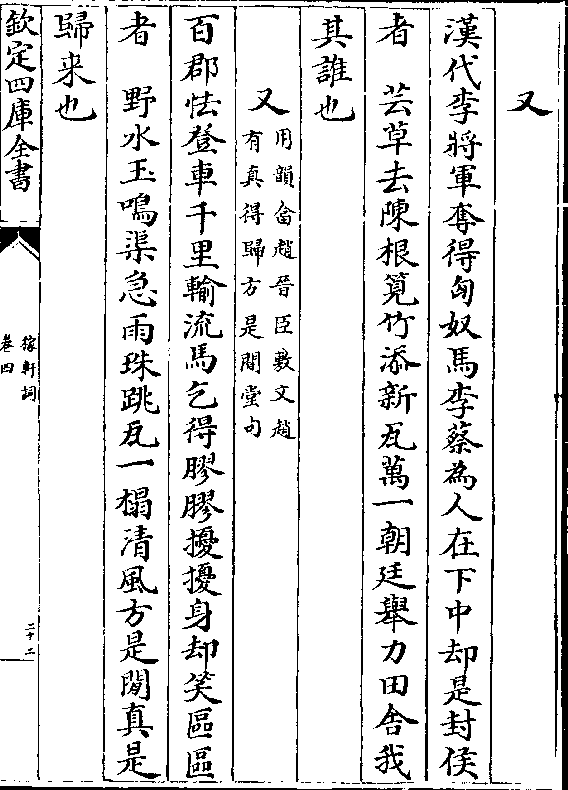 又
漢代李將軍奪得匈奴馬李蔡為人在下中却是封侯
者　芸草去陳根筧竹添新瓦萬一朝廷舉力田舎我
其誰也
又
用韻畣趙晉臣敷文趙
有真得歸方是閒堂句
百郡怯登車千里輸流馬乞得膠膠擾擾身却笑區區
者　野水玉鳴渠急雨珠跳瓦一榻清風方是閒真是
歸来也
欽定四庫全書
稼軒詞
卷四
二十二